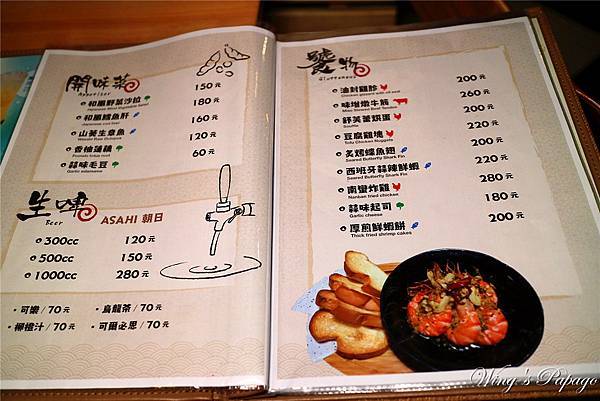 開味菜
Appetizer
和風野菜沙拉 150元
和風鱈魚肝 180元
山葵生章魚 160元
Wasabi Raw Octopus
香柚蓮藕 120元
蒜味毛豆 60元
Garlic edamame
生啤
Beer
ASAHI 朝日
300cc 120元
500cc 150元
1000cc 280元
・可樂/70元 ・烏龍茶/70元
・柳橙汁/70元 ・可爾必思/70元
饕物
Gluttonous
油封雞胗 200元
Chicken gizzard with oil seal
味增燉牛筋 260元
Miso Stewed Beef Tendon
舒芙蕾烘蛋 200元
Souffle
豆腐雞塊 200元
Tofu Chicken Nuggets
炙烤鰈魚翅 220元
Seared Butterfly Shark Fin
西班牙蒜辣鮮蝦 220元
Seared Butterfly Shark Fin
南蠻炸雞 280元
Nanban fried chicken
蒜味起司 180元
Garlic cheese
厚煎鮮蝦餅 200元
Thick fried shrimp cakes
Wing's Papago